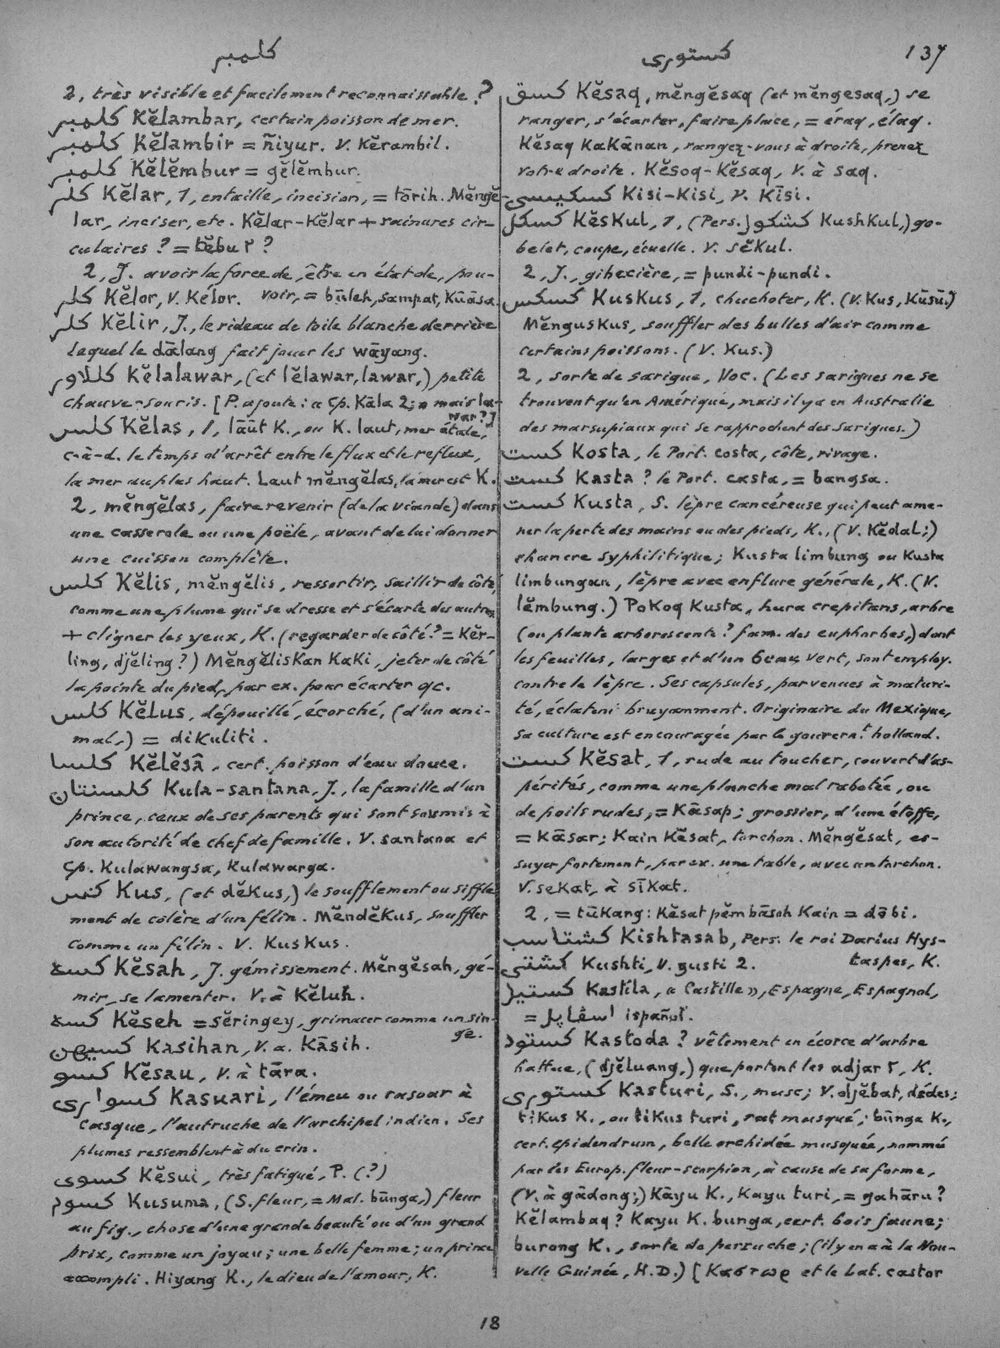 كلمبر
كستوري 137
2, très visible et facilement reconnaissable ?
كلمبر Kĕlambar, certain poisson de mer.
كلمبر Kĕlambir = ñiyur. V. Kĕrambil.
كلمبر Kĕlĕmbur = gĕlĕmbur.
كلر Kĕlar, 1, entaille, incision, = tōrih. Mĕngĕ-
lar, inciser, etc. Kĕlar-Kĕlar + rainures cir-
culaires ? = tĕbur ?
2, J. avoir la force de, être en état de, pou-
voir, = būleh, sampat, Kūāsa.
كلر Kĕlor, V. Kélor.
كلر Kĕlir, J., le rideau de toile blanche derrière
laquel le dālang fait jouer les wāyang.
كللاور Kĕlalawar, (et lĕlawar, lawar,) petite
chauve-souris. [P. ajoute: a Cp. Kāla 2; » mais la-
war ?]
كلس Kĕlas, 1, lāūt K., ou K. laut, mer étale,
c-à-d. le temps d'arrêt entre le flux et le reflux,
la mer au plus haut. Laut mĕngĕlas, la mer est K.
2, mĕngĕlas, faire revenir (de la viande) dans
une casserole ou une poële, avant de lui donner
une cuisson complète.
كلس Kĕlis, mĕngĕlis, ressortir, saillir de côté,
comme une plume qui se dresse et s'écarte des autres
+ cligner les yeux, K. (regarder de côté ? = Kĕr-
ling, djĕling ?) Mĕngĕliskan Kaki, jeter de côté
la pointe du pied, par ex. pour écarter qc.
كلس Kĕlus, dépouillé, écorché, (d'un ani-
mal,) = dikuliti.
كلسا Kĕlĕsā, cert. poisson d'eau douce.
كلسنتان Kula-santana, J., la famille d'un
prince, ceux de ses parents qui sont soumis à
son autorité de chef de famille. V. santana et
Cp. Kulawangsa, Kulawarga.
كس Kus, (et dĕkus,) le soufflement ou siffle-
ment de colère d'un félin. Mĕndĕkus, souffler
comme un félin. V. Kuskus.
كسه Kĕsah, J. gémissement. Mĕngĕsah, gé-
mir, se lamenter. V. à Kĕluh.
كسه Kĕseh = sĕringey, grimacer comme un sin-
ge.
كسيهن Kasihan, V. a. Kāsih.
كسو Kĕsau, V. à tāra.
كسواري Kasuari, l'émeu ou casoar à
Casque, l'autruche de l'archipel indien. Ses
plumes ressemblent à du crin.
كسوي Kĕsui, très fatigué, P. (?)
كسوم Kusuma, (S. fleur, = Mal. būnga,) fleur
au fig., chose d'une grande beauté ou d'un grand
prix, comme un joyau; une belle femme; un prince
accompli. Hiyang K., le dieu de l'amour, K.
كسق Kĕsaq, mĕngĕsaq (et mĕngesaq,) se
ranger, s'écarter, faire place, = éraq, élaq.
Kĕsaq Kakānan, rangez-vous à droite, prenez
votre droite. Kĕsoq-Kĕsaq, V. à saq.
كسكيسي Kisi-Kisi, V. Kīsi.
كسكل Kĕskul, 1, (Pers. كشكول Kushkul,) go-
belet, coupe, écuelle. V. sĕkul.
2, J., gibecière, = pundi-pundi.
كسكس Kuskus, 1, chuchoter, K. (V. Kus, Kūsū.)
Mĕnguskus, souffler des bulles d'air comme
certains poissons. (V. Kus.)
2, sorte de sarigue, Voc. (Les sarigues ne se
trouvent qu'en Amérique, mais il y a en Australie
des marsupiaux qui se rapprochent des sarigues.)
كست Kosta, le Port. costa, côte, rivage.
كست Kasta ? le Port. casta, = bangsa.
كست Kusta, S. lèpre cancéreuse qui peut ame-
ner la perte des mains ou des pieds, K., (V. Kĕdal;)
chancre syphilitique; Kusta limbung ou Kusta
limbungan, lèpre avec enflure générale, K. (V.
lĕmbung.) Pokoq Kusta, hura crepitans, arbre
(ou plante arborescente ? fam. des euphorbes,) dont
les feuilles, larges et d'un beau vert, sont employ.
contre la lèpre. Ses capsules, parvenues à maturi-
té, éclatent bruyamment. Originaire du Mexique,
sa culture est encouragée par le gouvern.t holland.
كست Kĕsat, 1, rude au toucher, couvert d'as-
pérités, comme une planche mal rabotée, ou
de poils rudes, = Kāsap; grossier, d'une étoffe,
= Kāsar; Kain Kĕsat, torchon. Mĕngĕsat, es-
suyer fortement, par ex. une table, avec un torchon.
V. sekat, à sīkat.
2, = tūkang: Kĕsat pĕmbāsoh Kain = dōbi.
كشتاسب Kishtasab, Pers. le roi Darius Hys-
taspes, K.
كشتي Kushti, V. gusti 2.
كستيل Kastīla, « Castille », Espagne, Espagnol,
= اسڤاپل ispañol.
كستود Kastoda ? vêtement en écorce d'arbre
battue, (djĕluang,) que portent les adjar ?, K.
كستوري Kasturi, S., musc; V. djĕbat, dédes;
tikus K., ou tikus turi, rat musqué; būnga K.,
cert. epidendrum, belle orchidée musquée, nommée
par les Europ. fleur-scorpion, à cause de sa forme,
(V. à gādong;) Kāyu K., Kayu turi, = gahāru ?
Kĕlambaq ? Kayu K. bunga, cert. bois jaune;
burong K., sorte de perruche; (il y en a à la Nou-
velle Guinée, H.D.) [Καστωρ et le Lat. castor
18